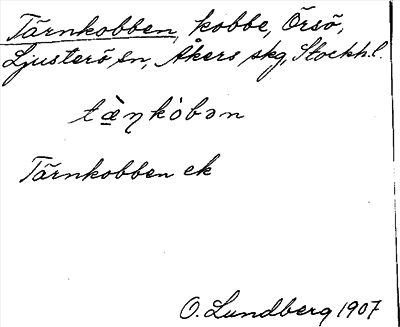 Tärnkobben, kobbe, Örsö,
Ljusterö sn, Åkers skg, Stockh. l.
tæ̀ŋkòbən
Tärnkobben ek
O. Lundberg 1907